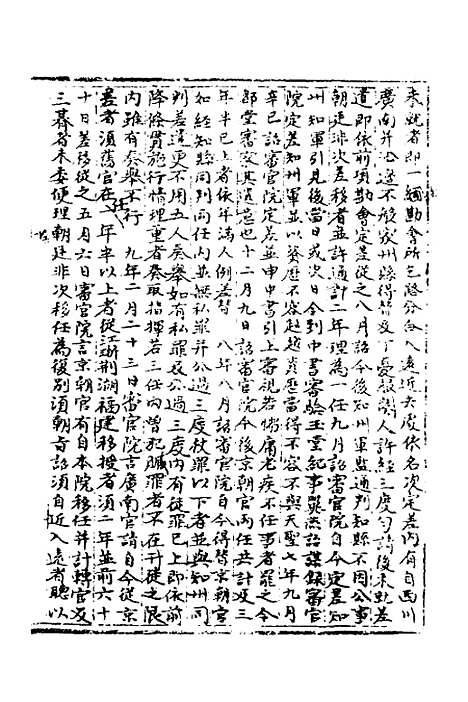 未就者即一緬勘會所乞路分合入遠近去處依名次定差內有自西川
廣南并沿邊不般家州縣得替及丁憂服闋人許經三度勾請後未就差
遣即依前項勘會定差從之八月詔今後知州軍監通判知縣不因公事
朝廷非次差移者並許通計二年理為一任九月詔審官院自今定差知
州知軍引見後當日或次日令到中書審驗玉堂紀事龐憑語謀錄審官
院定差知州軍並以資歷不容超越資歷當得不容不與天聖七年九月
辛巳詔審官院定差並申中書引上審視若懦庸老疾不任事者罷之今
都堂審察其遺意也十二月九日詔審官院今後京朝官兩任共計及三
年半已上者依年滿人例差替 八年八月詔審官院自今得替京朝官
如經知縣同判兩任內並無私罪并公過三度杖罪以下者並與知州同
判差遣更不用五人奏舉如有私罪及公過三度內有徒罪已上即依前
降條貫施行情理重者奏取指揮若三任內曾犯贓罪者不在升徒之限
內雖有奏舉不行 九年二月二十三日審官院言廣南官請自今從京
差者須舊官在任年半以上者從江浙荊湖福建移授者須二年並前六十
十日差替從之五月六日審官院言京朝官有自本院移任并計轉官及
三替者未委便理朝廷非次移任為復別須朝旨詔須自近入遠者聽以